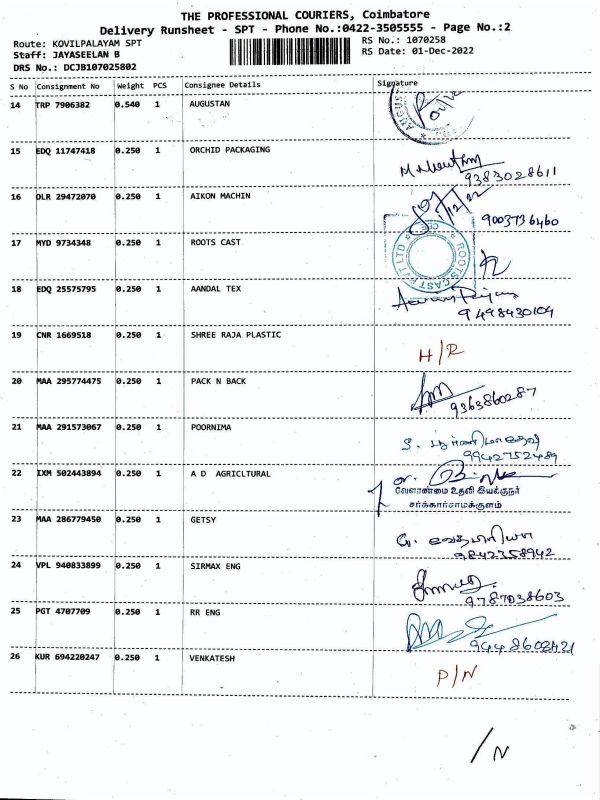 THE PROFESSIONAL COURIERS, Coimbatore
Delivery Runsheet - SPT - Phone No.:0422-3505555 - Page No.:2
Route: KOVILPALAYAM SPT
RS No.: 1070258
Staff: JAYASEELAN B
RS Date: 01-Dec-2022
DRS No.: DCJB107025802
S No Consignment No Weight PCS Consignee Details Signature
14 TRP 7906382 0.540 1 AUGUSTAN
15 EDQ 11747418 0.250 1 ORCHID PACKAGING
9383028611
16 OLR 29472070 0.250 1 AIKON MACHIN
9003736460
17 MYD 9734348 0.250 1 ROOTS CAST
ROOTS CAST PVT LTD
18 EDQ 25575795 0.250 1 AANDAL TEX
9498430104
19 CNR 1669518 0.250 1 SHREE RAJA PLASTIC
H/R
20 MAA 295774475 0.250 1 PACK N BACK
9363860287
21 MAA 291573067 0.250 1 POORNIMA
9942752489
22 IXM 502443894 0.250 1 A D AGRICLTURAL
வேளாண்மை உதவி இயக்குநர்
சர்க்கார்சாமக்குளம்
23 MAA 286779450 0.250 1 GETSY
9842358942
24 VPL 940833899 0.250 1 SIRMAX ENG
9787038603
25 PGT 4707709 0.250 1 RR ENG
9448602421
26 KUR 694220247 0.250 1 VENKATESH
P/N
/N